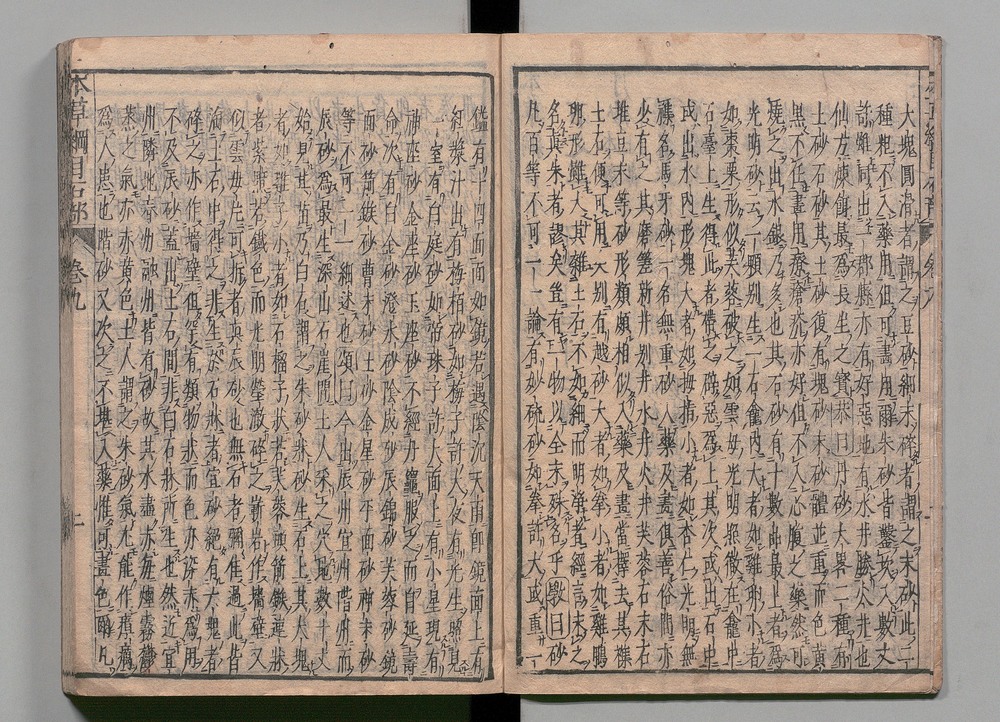 大塊圓滑者謂之豆砂細末碎者謂之末砂此二
種粗不入藥用但可畫用爾朱砂皆鑿坎入數丈
許雖同出一郡縣亦有好惡地有水井勝火井也
仙方煉餌最爲長生之寶恭曰丹砂大畧二種有
土砂石砂其土砂復有塊砂末砂體並重而色黄
黒不任畫用療瘡疥亦好但不入心腹之藥然可
燒之出水銀乃多也其石砂有十數品最上者爲
光明砂云一顆别生一石龕内大者如雞卵小者
如棗栗形似芙蓉破之如雲母光明照徹在龕中
石臺上生得此者帶之辟惡爲上其次或出石中
或出水内形塊大者如拇指小者如杏仁光明無
雜名馬牙砂一名無重砂入藥及畫俱善俗間亦
少有之其有磨䃺新井别井水井火井芙蓉石末石
堆豆末等砂形類頗相似入藥及畫當擇去其襍
土石便可用大别有越砂大者如拳小者如雞鴨
卵形雖大其雜土石不如細而明淨者經言末之
名真朱者謬矣豈有一物以全末殊名乎斅曰
凡百等不可一一論有妙硫砂如拳許大或重一
鎰有十四面面如鏡若遇陰沉天雨即鏡面上有
紅漿汁出有梅栢砂如梅子許大夜有光生照見
一室有白庭砂如帝珠子許大面上有小星現有
神座砂金座砂玉座砂不經丹竈服之而自延壽
命次有白金砂澄水砂陰成砂辰錦砂芙蓉砂鏡
面砂箭鏃砂曹末砂土砂金星砂平面砂神末砂
等不可一一細述也頌曰今出辰州宜州階州而
辰砂爲最生深山石崖間土人采之穴地數十尺
始見其苗乃白石謂之朱砂牀砂生石上其大塊
者如雞子小者如石榴子狀若芙蓉頭箭鏃連牀
者紫黯若鐵色而光明瑩澈碎之嶄岩作墻壁又
似雲母片可析者真辰砂也無石者彌佳過此皆
淘土石中得之非生於石牀者宜砂絶有大塊者
碎之亦作墻壁但罕有類物狀而色亦深赤爲用
不及辰砂蓋出土石間非白石牀所生也然近宜
州隣地春州融州皆有砂故其水盡赤每煙霧鬱
蒸之氣亦赤黄色土人謂之朱砂氣尤能作瘴癘
爲人患也階砂又次之不堪入藥惟可畫色爾凡
本草綱目石部
卷九